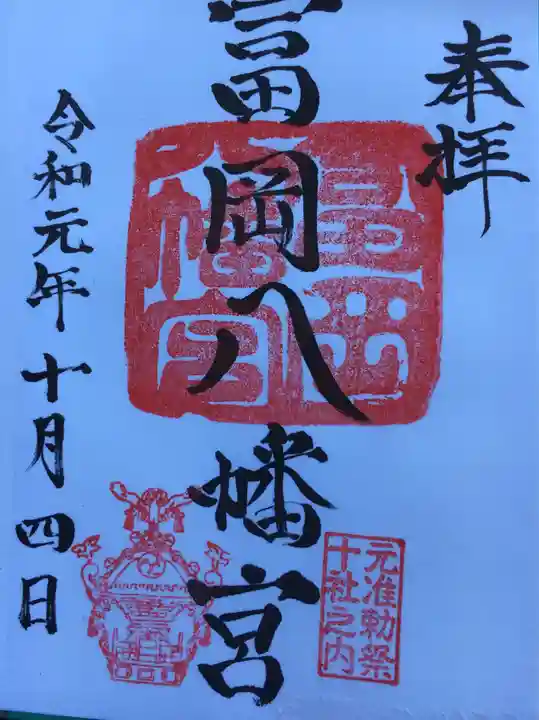 奉拝
富岡八幡宮
元准勅祭
十社之内
令和元年十月四日